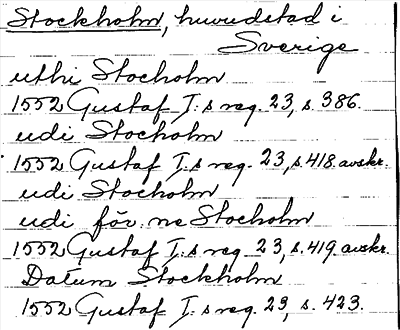 Stockholm, huvudstad i
Sverige
uthi Stocholm
1552 Gustaf I:s reg. 23, s. 386.
udi Stocholm
1552 Gustaf I:s reg. 23, s. 418 avskr.
udi Stocholm
udi för. ne Stocholm
1552 Gustaf I:s reg 23, s. 419 avskr.
Datum Stockholm
1552 Gustaf I:s reg. 23, s. 423.